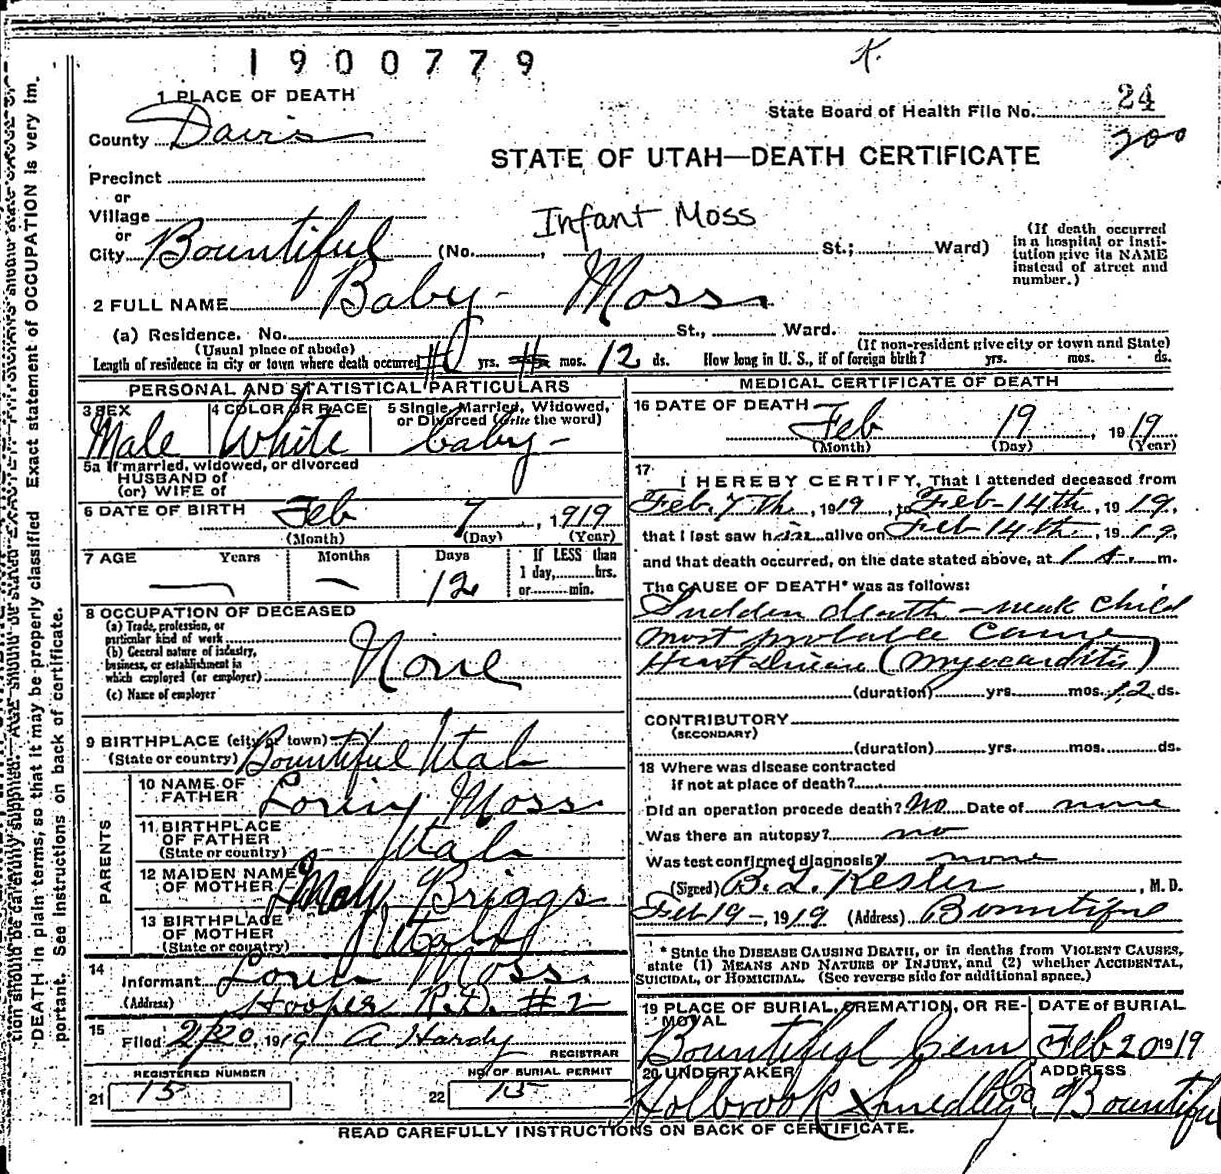 1900779
K.
1 PLACE OF DEATH
State Board of Health File No. 24
200
County Davis
STATE OF UTAH—DEATH CERTIFICATE
Precinct
or
Village
Infant Moss
or
City Bountiful (No. , St.; Ward)
(If death occurred in a hospital or institution give its NAME instead of street and number.)
2 FULL NAME Baby - Moss
(a) Residence. No. St., Ward.
(Usual place of abode) (If non-resident give city or town and State)
Length of residence in city or town where death occurred yrs. mos. 12 ds. How long in U. S., if of foreign birth? yrs. mos. ds.
PERSONAL AND STATISTICAL PARTICULARS
3 SEX
Male
4 COLOR OR RACE
White
5 Single, Married, Widowed,
or Divorced (write the word)
baby -
5a If married, widowed, or divorced
HUSBAND of
(or) WIFE of
6 DATE OF BIRTH Feb 7, 1919
(Month) (Day) (Year)
7 AGE Years Months Days If LESS than
— — 12 1 day, hrs.
or min.
8 OCCUPATION OF DECEASED
(a) Trade, profession, or
particular kind of work
(b) General nature of industry,
business, or establishment in
which employed (or employer)
None
(c) Name of employer
9 BIRTHPLACE (city or town)
(State or country) Bountiful Utah
PARENTS
10 NAME OF
FATHER Loriny Moss
11 BIRTHPLACE
OF FATHER
(State or country) Utah
12 MAIDEN NAME
OF MOTHER Mary Briggs
13 BIRTHPLACE
OF MOTHER
(State or country) Utah
14
Informant Loren Moss
(Address) Hooper R.D. #2
15
Filed 2/20, 1919 A Hardy
REGISTRAR
REGISTERED NUMBER
21 15
NO. OF BURIAL PERMIT
22 15
MEDICAL CERTIFICATE OF DEATH
16 DATE OF DEATH
Feb 19, 1919
(Month) (Day) (Year)
17
I HEREBY CERTIFY, That I attended deceased from
Feb. 7th, 1919, to Feb-14th, 1919,
that I last saw him alive on Feb-14th, 1919,
and that death occurred, on the date stated above, at 1 A. m.
The CAUSE OF DEATH* was as follows:
Sudden death - weak child
most probable cause
Heart Disease (Myocarditis)
(duration) yrs. mos. 12 ds.
CONTRIBUTORY
(SECONDARY)
(duration) yrs. mos. ds.
18 Where was disease contracted
if not at place of death?
Did an operation precede death? No Date of none
Was there an autopsy? no
Was test confirmed diagnosis? none
(Signed) B. L. Kesler, M. D.
Feb 19 -, 1919 (Address) Bountiful
* State the DISEASE CAUSING DEATH, or in deaths from VIOLENT CAUSES,
state (1) MEANS AND NATURE OF INJURY, and (2) whether ACCIDENTAL,
SUICIDAL, or HOMICIDAL. (See reverse side for additional space.)
19 PLACE OF BURIAL, CREMATION, OR RE-
MOVAL
Bountiful Cem
DATE of BURIAL
Feb 20 1919
20 UNDERTAKER
Holbrook Smedley Co.
ADDRESS
Bountiful
READ CAREFULLY INSTRUCTIONS ON BACK OF CERTIFICATE.
tion should be carefully supplied. AGE should be stated
DEATH in plain terms, so that it may be properly classified. Exact statement of OCCUPATION is very im-
portant. See Instructions on back of certificate.